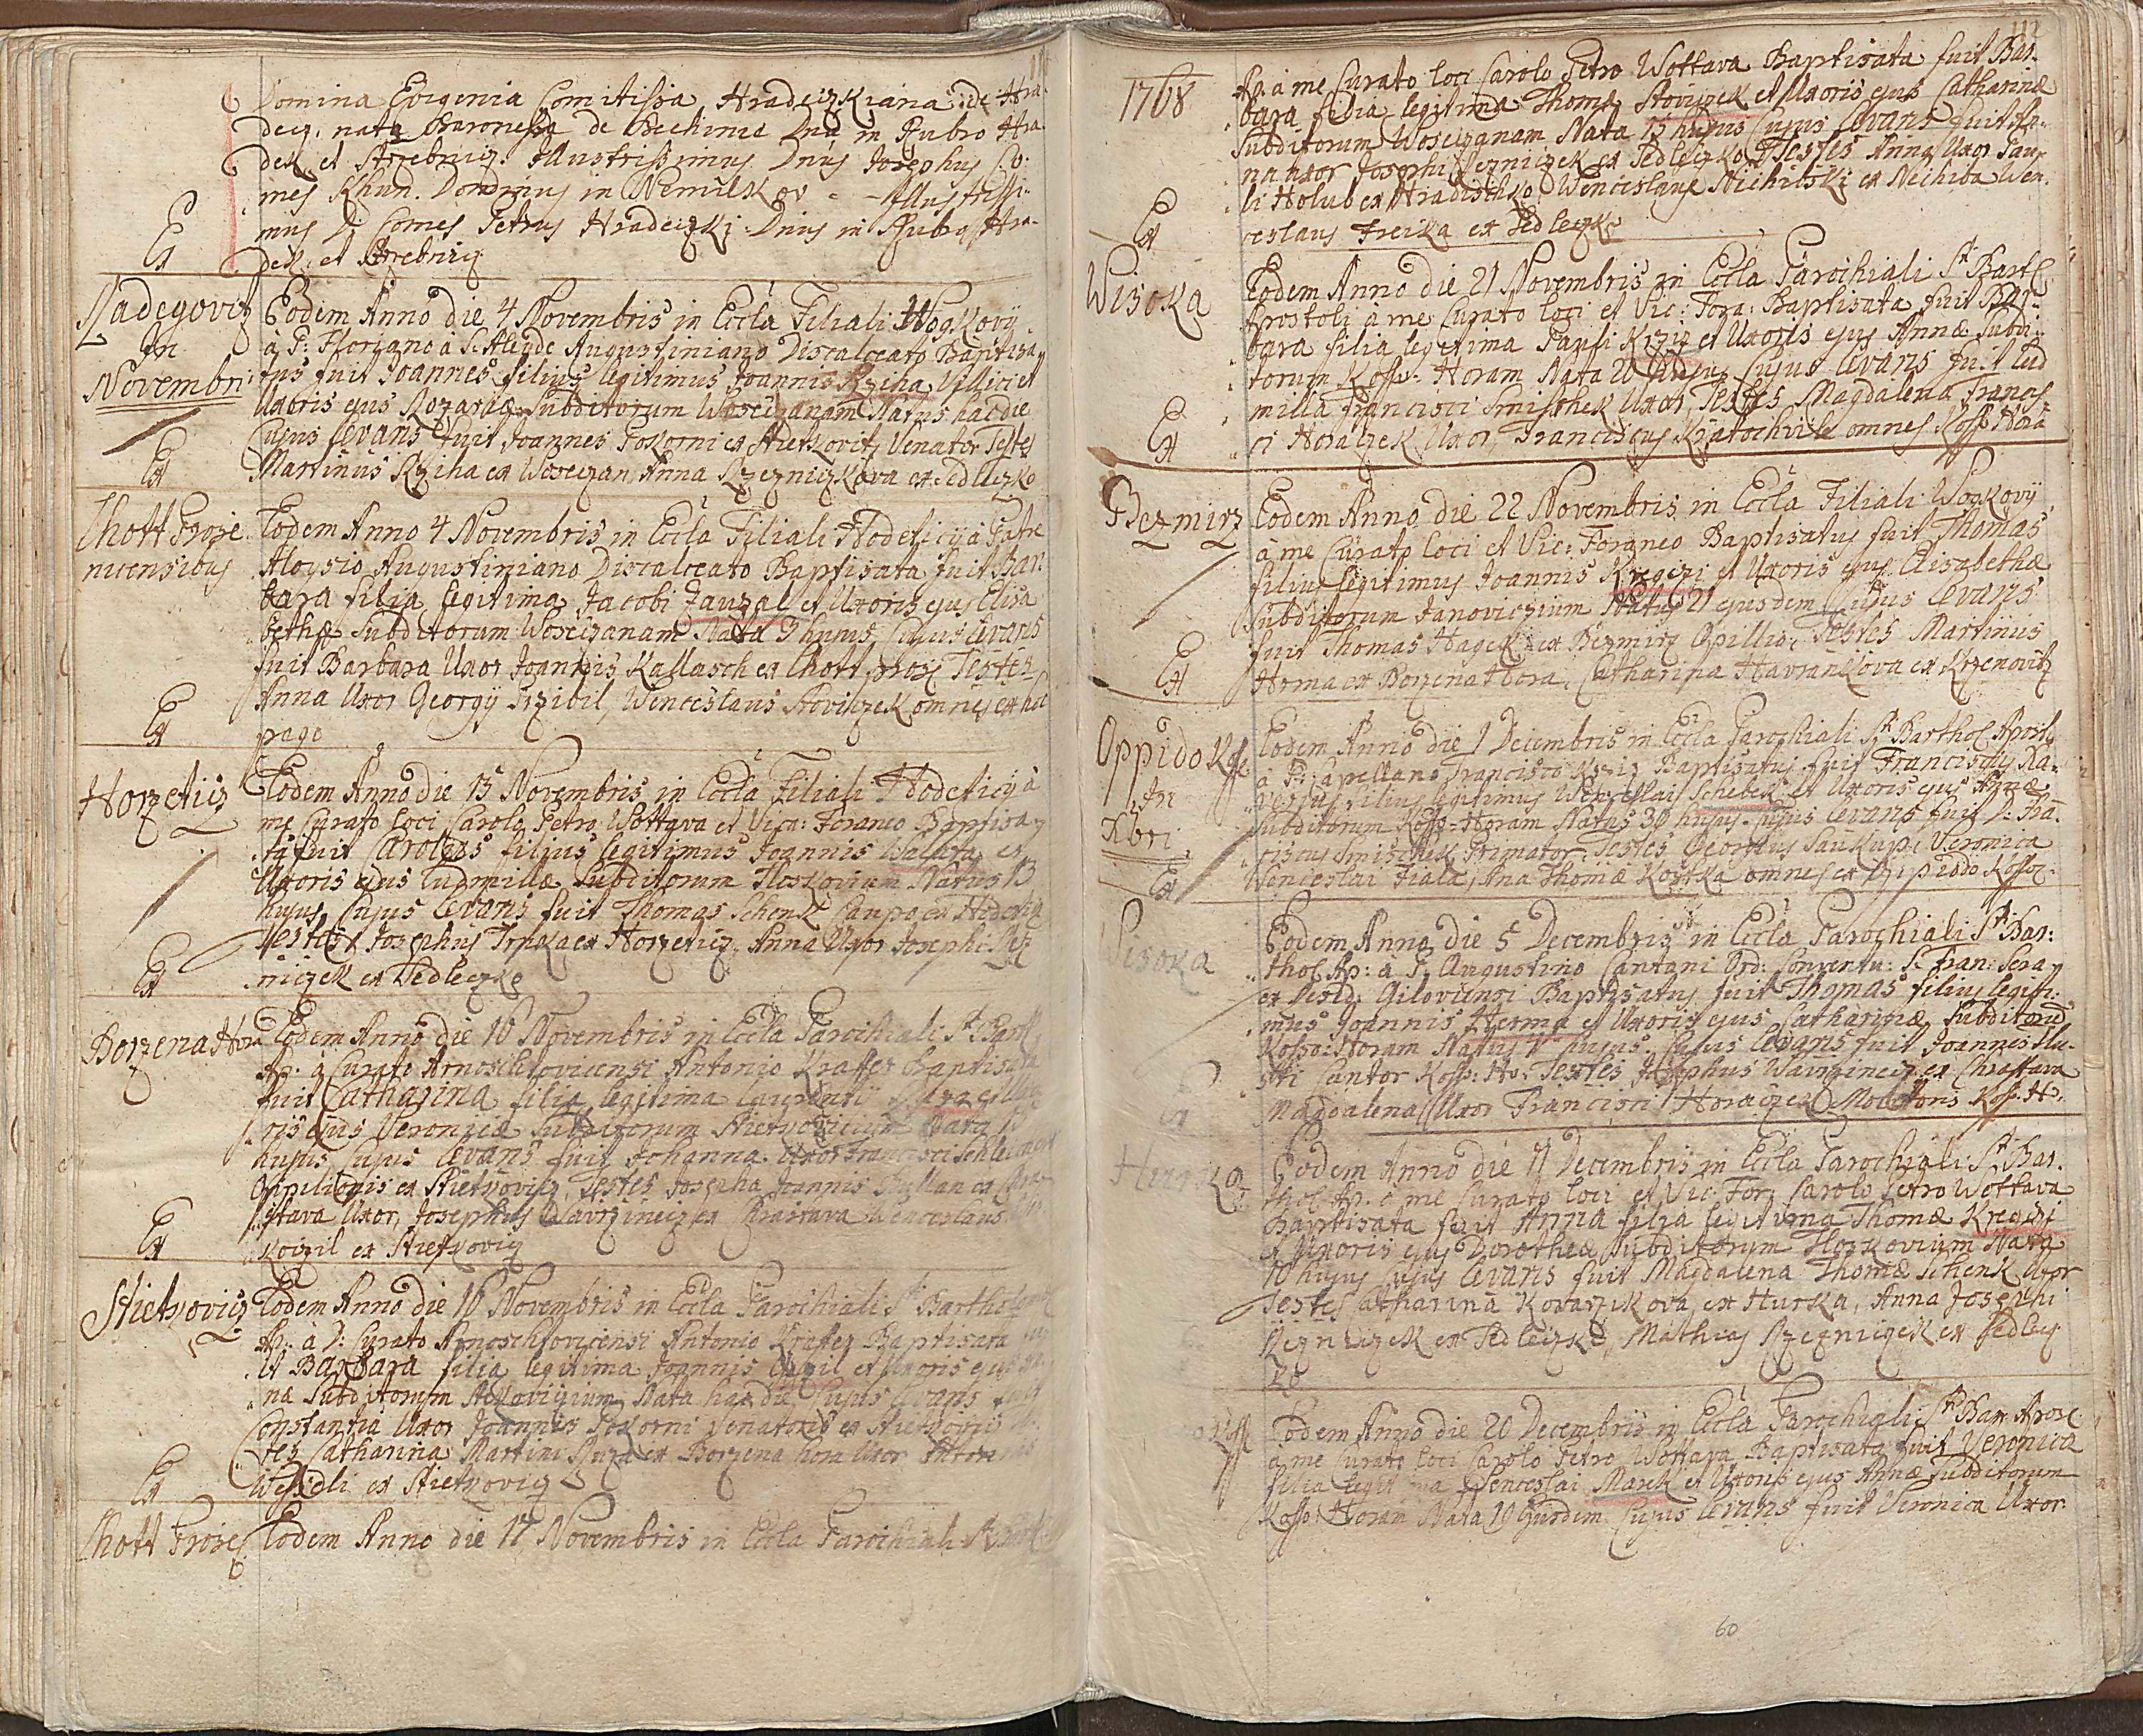 111
Domina Evigenia Comitissa Hradeczkiana de Hra-
decz, nata Baronessa de Bechinie Dna in Rubro Hra-
dek, et Strzebnicz. Illustrissimus Dnus Josephus Co-
mes Khun. Dominus in Nemilkov = Illustrissi-
mus D: Comes Petrus Hradeczki Dnus in Rubro Hra-
Et dek, et Strzebnicz
Nadegovitz
In
Novembri
Eodem Anno die 4 Novembris in Eccla Filiali
à P: Floriano à S: Augustiniano Discalceato Baptisa-
tus fuit Joannes filius legitimus Joannis Rziha Villici et
Uxoris ejus Rozariae Subditorum Woseczanam Natus hac die
Cujus Levans fuit Joannes Pokorni ex Stietkovitz Venator Testes
Et Martinus Rziha ex Woseczan, Anna Rzezniczkova ex Sedleczko
Chott Proze
nicensibus
Eodem Anno 4 Novembris in Eccla Filiali Hodeticij à Patre
Aloysio Augustiniano Discalceato Baptisata fuit Bar-
bara filia legitima Jacobi Jauzal et Uxoris ejus Elisa
bethae Subditorum Woseczanam Nata 3 hujus, Cujus Levans
fuit Barbara Uxor Joannis Kallasch ex Chott proze Testes
Anna Uxor Georgij Przibil, Wenceslaus Stoviczek omnes ex hoc
Et pago
Horzeticz
Eodem Anno die 13 Novembris in Eccla Filiali Hodeticij à
me Curato loci Carolo Petro Wottava et Vica: Foraneo Baptisa-
tus fuit Carolus filius legitimus Joannis et
Uxoris ejus Ludmillae Subditorum Tloskovium Natus 13
hujus, Cujus Levans fuit Thomas Schenk Caupo ex
Testes Josephus Trnka ex Horzeticz, Anna Uxor Josephi Rzez
Et niczek ex Sedleczko
Borzena Hora
Eodem Anno die 16 Novembris in Eccla Parochiali S: Barth
Ap: à Curato Arnoschtovicensi Antonio Kraffer Baptisata
fuit Catharina filia legitima Laurentij et Uxo
ris ejus Veronicae Subditorum Nata
hujus, Cujus Levans fuit Johanna Uxor Francisci
Oppilionis ex Stietkovicz, Testes Josepha Joannis ex
stava Uxor, Josephus Wavrzinecz ex Chrastava Wenceslaus
Et ex Stietkovicz
Stietkovicz
Eodem Anno die 16 Novembris in Eccla Parochiali S: Barthol
Ap: à D: Curato Arnoschtovicensi Antonio Kraffer Baptisata
it Barbara filia legitima Joannis et Uxoris ejus
nae Subditorum Nata hac die, Cujus Levans
Constantia Uxor Joannis Pokorni Venatoris ex Stietkovicz
tes Catharina Martini ex Borzena hora Uxor
Et ex Stietkovicz
Chott Prozes
Eodem Anno die 17 Novembris in Eccla Parochiali
112
1768
Ap. à me Curato loci Carolo Petro Wottava Baptisata fuit Bar-
bara filia legitima Thomae Stoviczek et Uxoris ejus Catharinae
Subditorum Woseczanam Nata 15 hujus Cujus Levans fuit An-
na uxor Josephi Rzezniczek ex Sedleczko, Testes Anna Uxor Pau-
li Holub ex Hradischko, Wenceslaus Nichilski ex Nechiba Wen-
Et ceslaus Freika ex Sedleczko
Wisoka
Eodem Anno die 21 Novembris in Eccla Parochiali S: Barth
Apostoli à me Curato loci et Vic: Fora: Baptisata fuit Bar-
bara filia legitima Pauli Krziz et Uxoris ejus Annae Subdi-
torum Kosso: Horam Nata 20 hujus, Cujus Levans fuit Lud
milla Francisci Smischek Uxor, Testes Magdalena Francis-
Et ci Horaczek Uxor, Franciscus Kratochvile omnes Kosso Hora
Bezmirz
Eodem Anno die 22 Novembris in Eccla Filiali
à me Curato loci et Vic: Foraneo Baptisatus fuit Thomas
filius legitimus Joannis Kregczi et Uxoris ejus Elisabethae
Subditorum Janoviczium Natus 21 ejusdem, Cujus Levans
fuit Thomas Hagek ex Bezmirz Opillio, Testes Martinus
Et Hrma ex Borzena Hora, Catharina Havrankova ex Krzenovitz
Oppido Kosso
In
Xbri
Eodem Anno die 1 Decembris in Eccla Parochiali S: Barthol Apost
à P: Capellano Francisco Krziz Baptisatus fuit Franciscus Xa-
verius filius legitimus Wenceslai Schebek et Uxoris ejus Annae
Subditorum Kosso= Horam Natus 30 hujus, Cujus Levans fuit D: Fra
ciscus Smischek Primator, Testes Georgius Saukup, Veronica
Et Wenceslai Fiala, Ana Thomae Kostka omnes ex Oppido Kosso:
Wisoka
Eodem Anno die 5 Decembris in Eccla Parochiali S: Bar:
thol Ap: à P. Augustino Cantani Ord: Conventu: S: Fran: Sera-
ex Resid: Gilovicensi Baptisatus fuit Thomas filius legiti-
mus Joannis Herma et Uxoris ejus Catharinae Subditorum
Kosso: Horam Natus 4 hujus. Cujus Levans fuit Joannes
Cantor Koss: Ho: Testes Josephus Wavrzinecz ex Chrastava
Et Magdalena Uxor Francisci Horaczek Molitoris Koss. Ho.
Hurka
Eodem Anno die 11 Decembris in Eccla Parochiali S: Bar.
thol Ap. à me Curato loci et Vic: For: Carolo Petro Wottava
Baptisata fuit Anna filia legitima Thomae Kregczi
et Uxoris ejus Dorotheae Subditorum Tloskovium Nata
10 hujus Cujus Levans fuit Magdalena Thomae Schenk Uxor
Testes Catharina Kovarzikova ex Hurka, Anna Josephi
Rzezniczek ex Sedleczko, Mathias Rzezniczek ex Sedlecz
ko
Eodem Anno die 20 Decembris in Eccla Parochiali S: Bar. Apos:
à me Curato loci Carolo Petro Wottava Baptisata fuit Veronica
filia legitima Wenceslai Marek et Uxoris ejus Annae Subditorum
Kosso: Horam Nata 19 Ejusdem Cujus Levans fuit Veronica Uxor
60